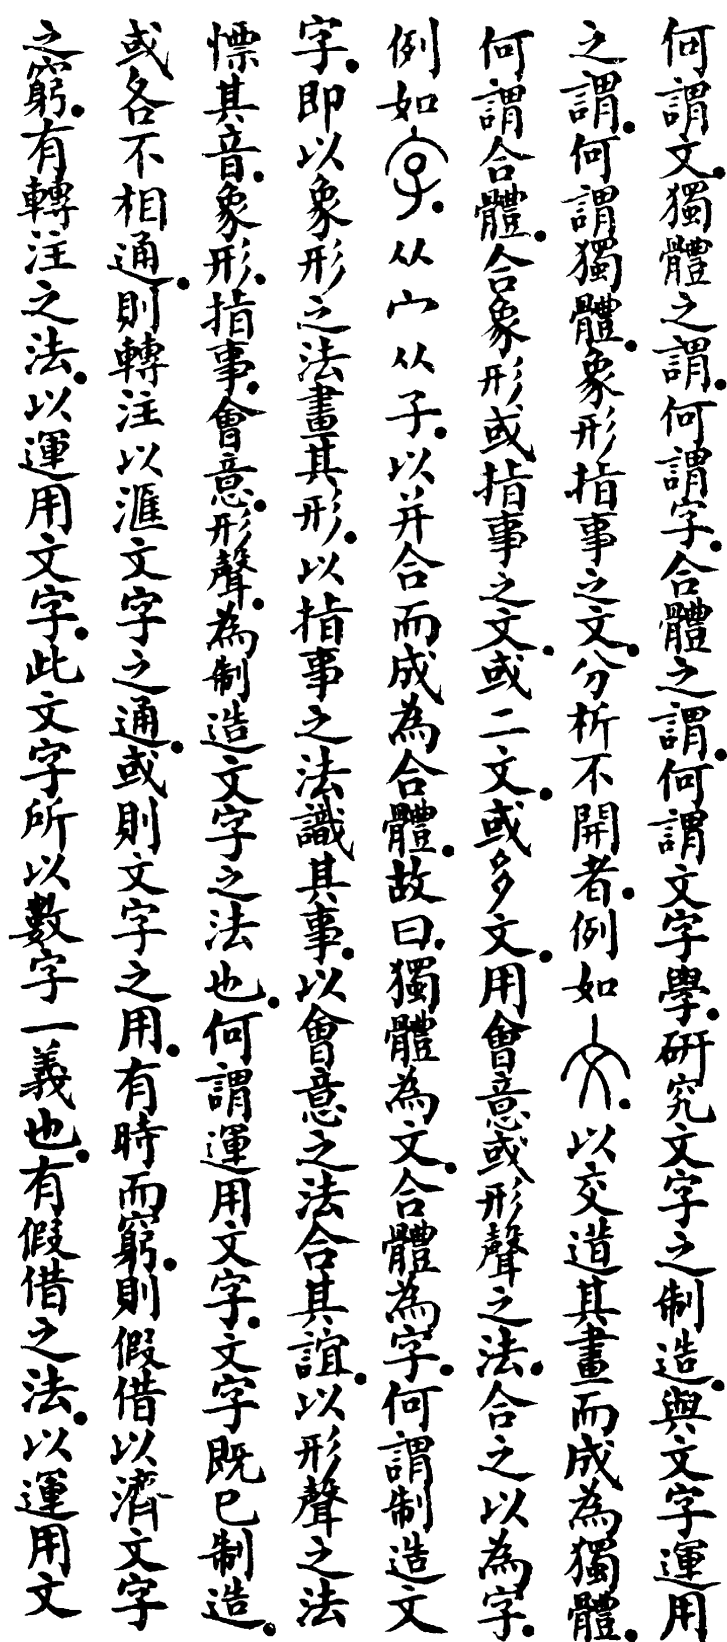 何謂文.獨體之謂.何謂字.合體之謂.何謂文字學.研究文字之制造.與文字運用
之謂.何謂獨體.象形指事之文.分析不開者.例如文.以交遣其畫而成為獨體.
何謂合體.合象形或指事之文.或二文.或多文.用會意或形聲之法.合之以為字.
例如字.从宀从子.以并合而成為合體.故曰.獨體為文.合體為字.何謂制造文
字.即以象形之法畫其形.以指事之法識其事.以會意之法合其誼.以形聲之法
慓其音.象形.指事.會意.形聲.為制造文字之法也.何謂運用文字.文字既已制造.
或各不相通.則轉注以滙文字之通.或則文字之用.有時而窮.則假借以濟文字
之窮.有轉注之法.以運用文字.此文字所以數字一義也.有假借之法.以運用文